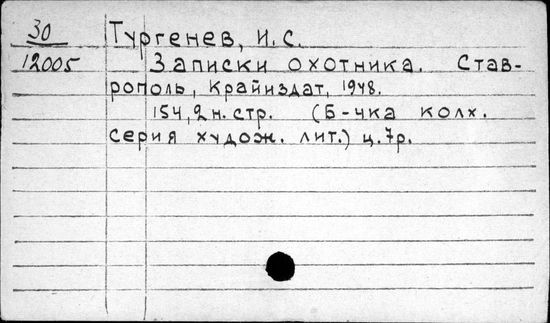 30
12005
Тургенев, И. С.
Записки охотника. Став-
рополь, Крайиздат, 1948.
154, 2 н. стр. (Б-чка колх.
серия худож. лит.) ц. 7 р.